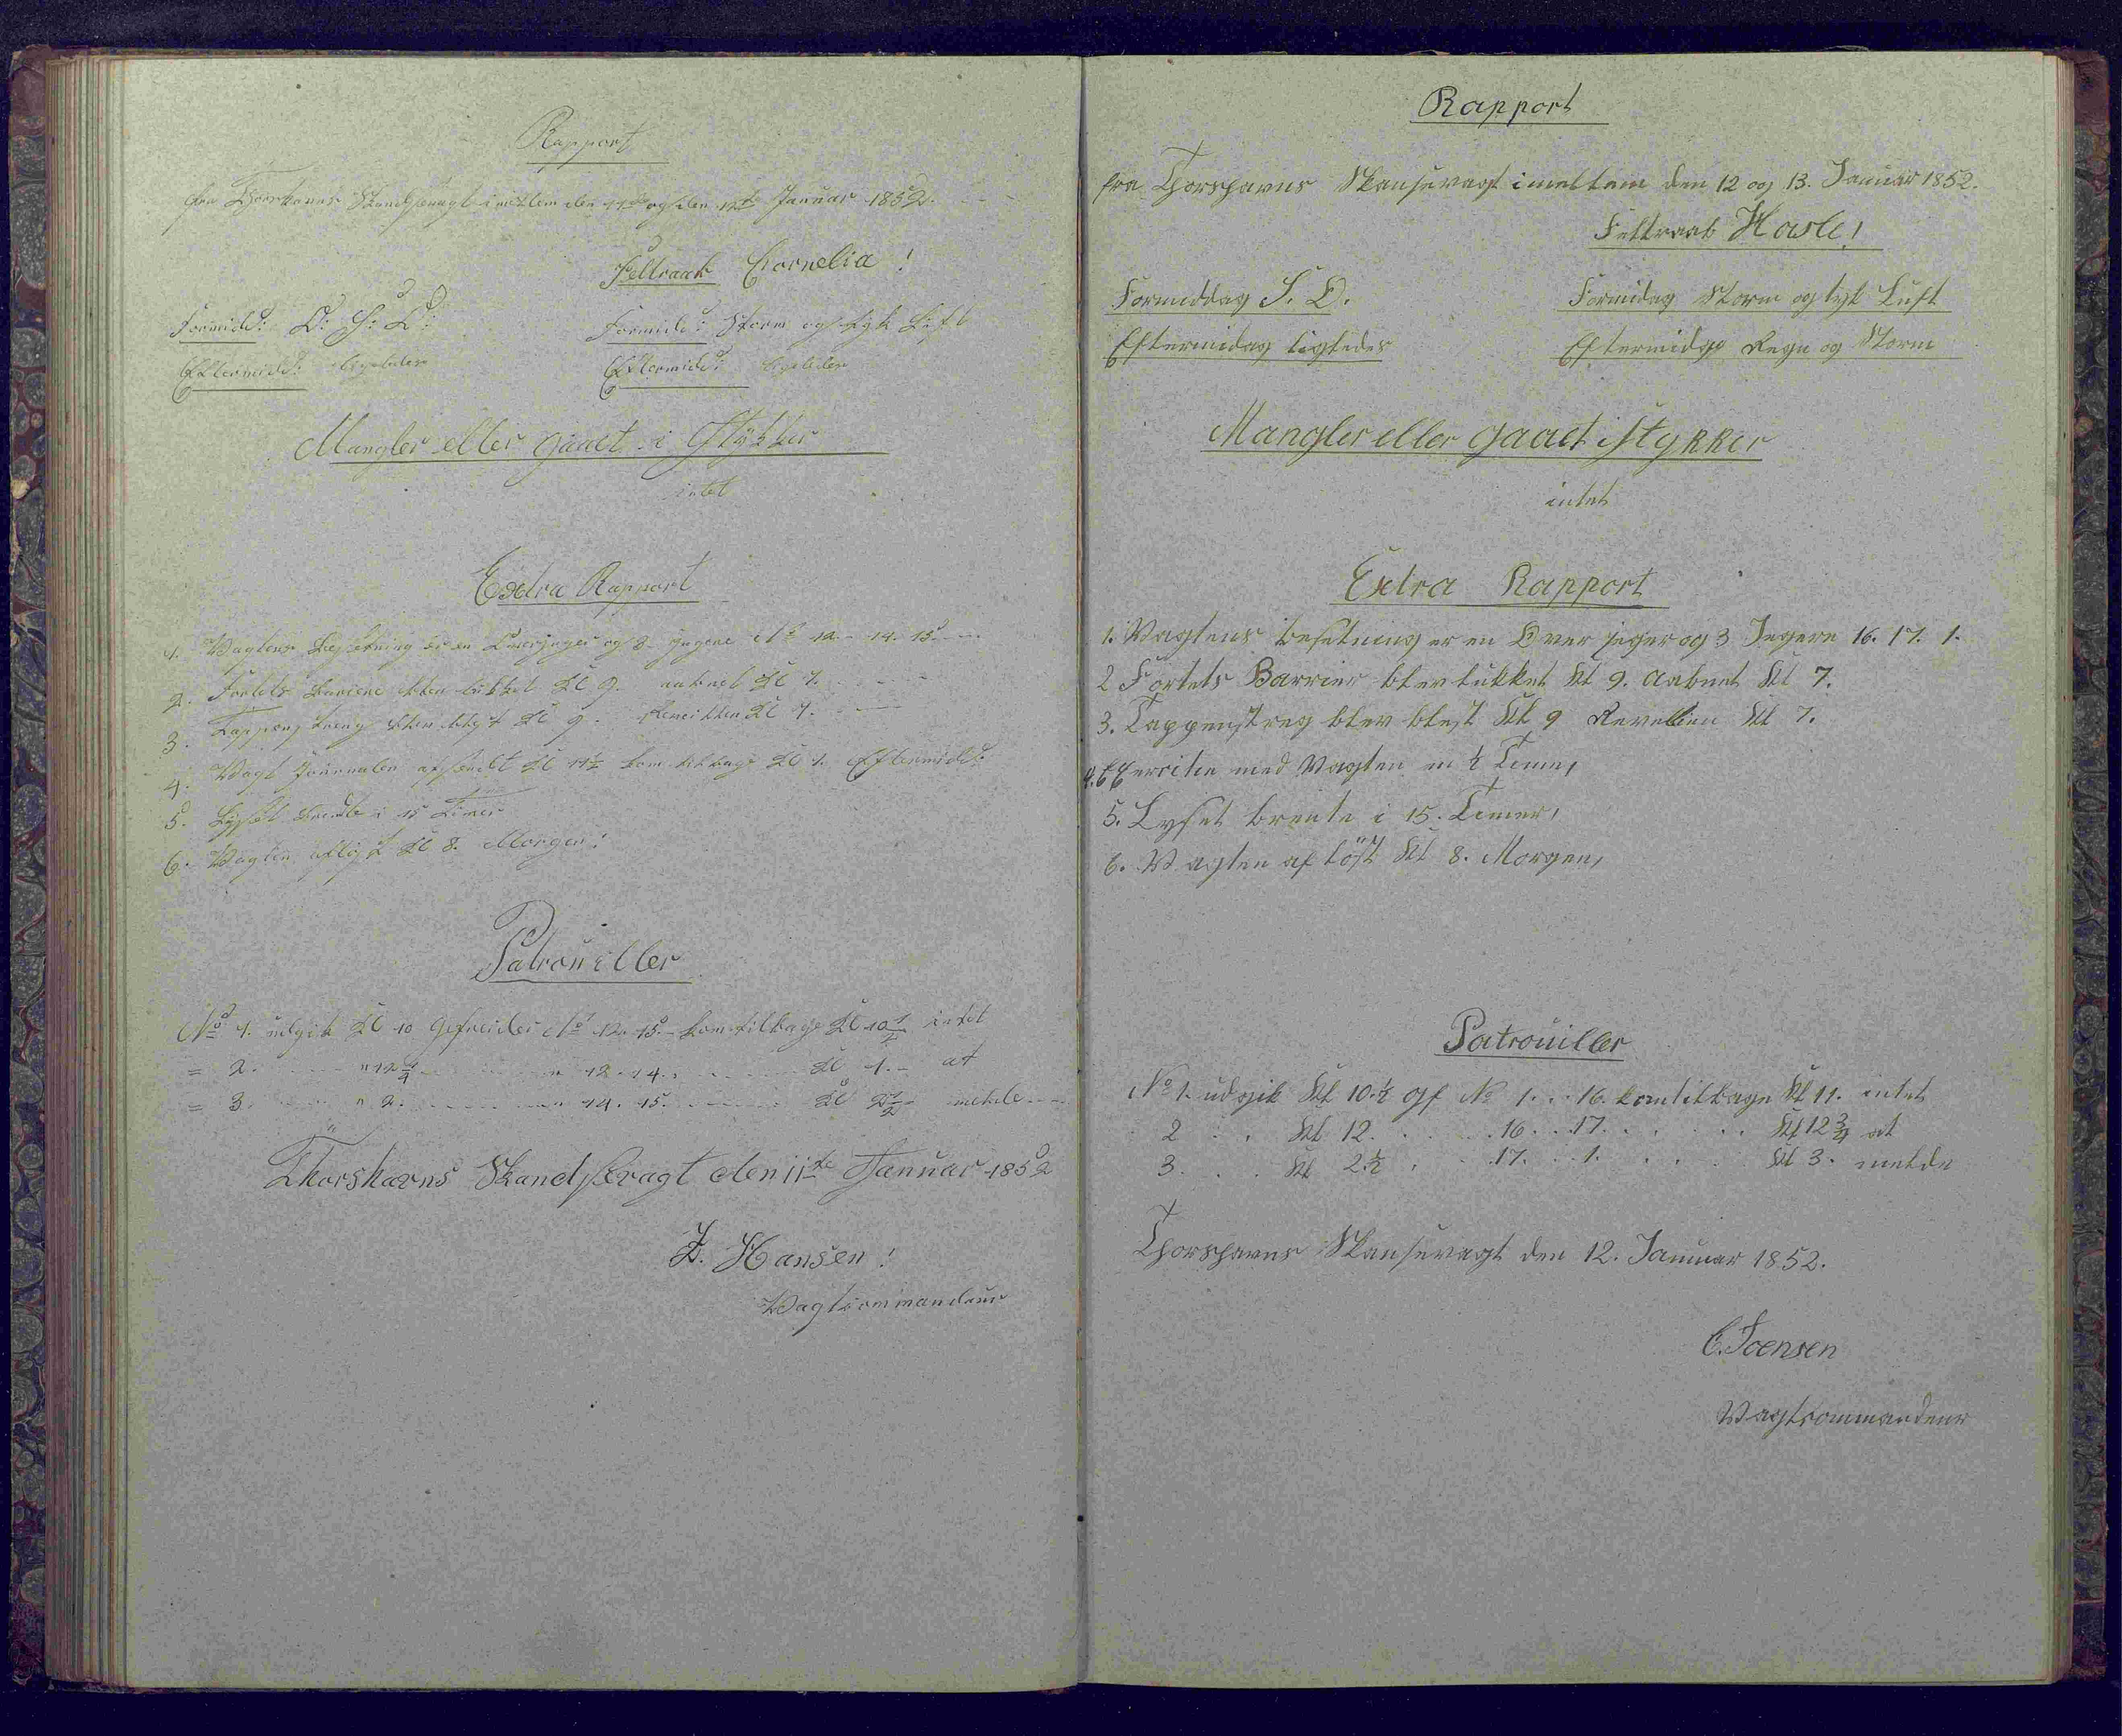 Rapport
fra Thorshavns Skandsevagt imellem den 11te og den 12te Januar 1852.
Feltraab Cornelia !
Formidd: O: S: O:
Formidd: Storm og tyk Luft
Eftermidd: ligeledes
Eftermidd: ligeledes
Mangler eller gaaet i Stykker
intet
Extra Rapport
1. Vagtens Besetning er en Overjæger og 3 Jægere No 12. 14. 15.
2. Fortets Bariere blev lukket Kl 9. aabnet Kl 7.
3. Tappenstreng blev blest Kl 9. Reveillen Kl 7.
4. Vagt Journalen afsendt Kl 11½ kom tilbage Kl 1. Eftermidd:
5. Lyset brendte i 15 Timer
6. Vagten aflöst Kl 8. Morgen!
Patrouiller
No 1. udgik Kl 10 Gefreider No 12. 15. kom tilbage Kl 10½ intet
= 2. " 12¼ " 12. 14. Kl 1. at
= 3. " 2. " 14. 15. Kl 2½ melde
Thorshavns Skandsevagt den 11te Januar 1852
Z. Hansen !
Vagtcommandeur
Rapport
fra Thorshavns Skansevagt imellem den 12 og 13. Januar 1852.
Feltraab Hasle!
Formiddag S. O.
Formidag Storm og tyk Luft
Eftermidag ligledes
Eftermidag Regn og Storm
Mangler eller gaaet istykker
intet
Extra Rapport
1. Vagtens besetning er en Over jeger og 3 Jegere 16. 17. 1.
2 Fortets Barrier blev lukket Kl 9. aabnet Kl 7.
3. Tappenstreg blev blest Kl 9 Revellien Kl 7.
4. Exersitie med Vagten en ½ Time,
5. Lyset brente i 15. Timer,
6. Vagten af löst Kl 8. Morgen,
Patrouiller
No 1. udgik Kl 10.½ gf No 1. . . 16. kom tilbage Kl 11. intet
2 . . Kl 12. . . . 16 . . 17. . . . . Kl 12¾ at
3. . . Kl 2.½ . . . 17. . . 1. . . . . Kl 3. melde
Thorshavns Skansevagt den 12. Januar 1852.
C. Joensen
Vagtcommandeur